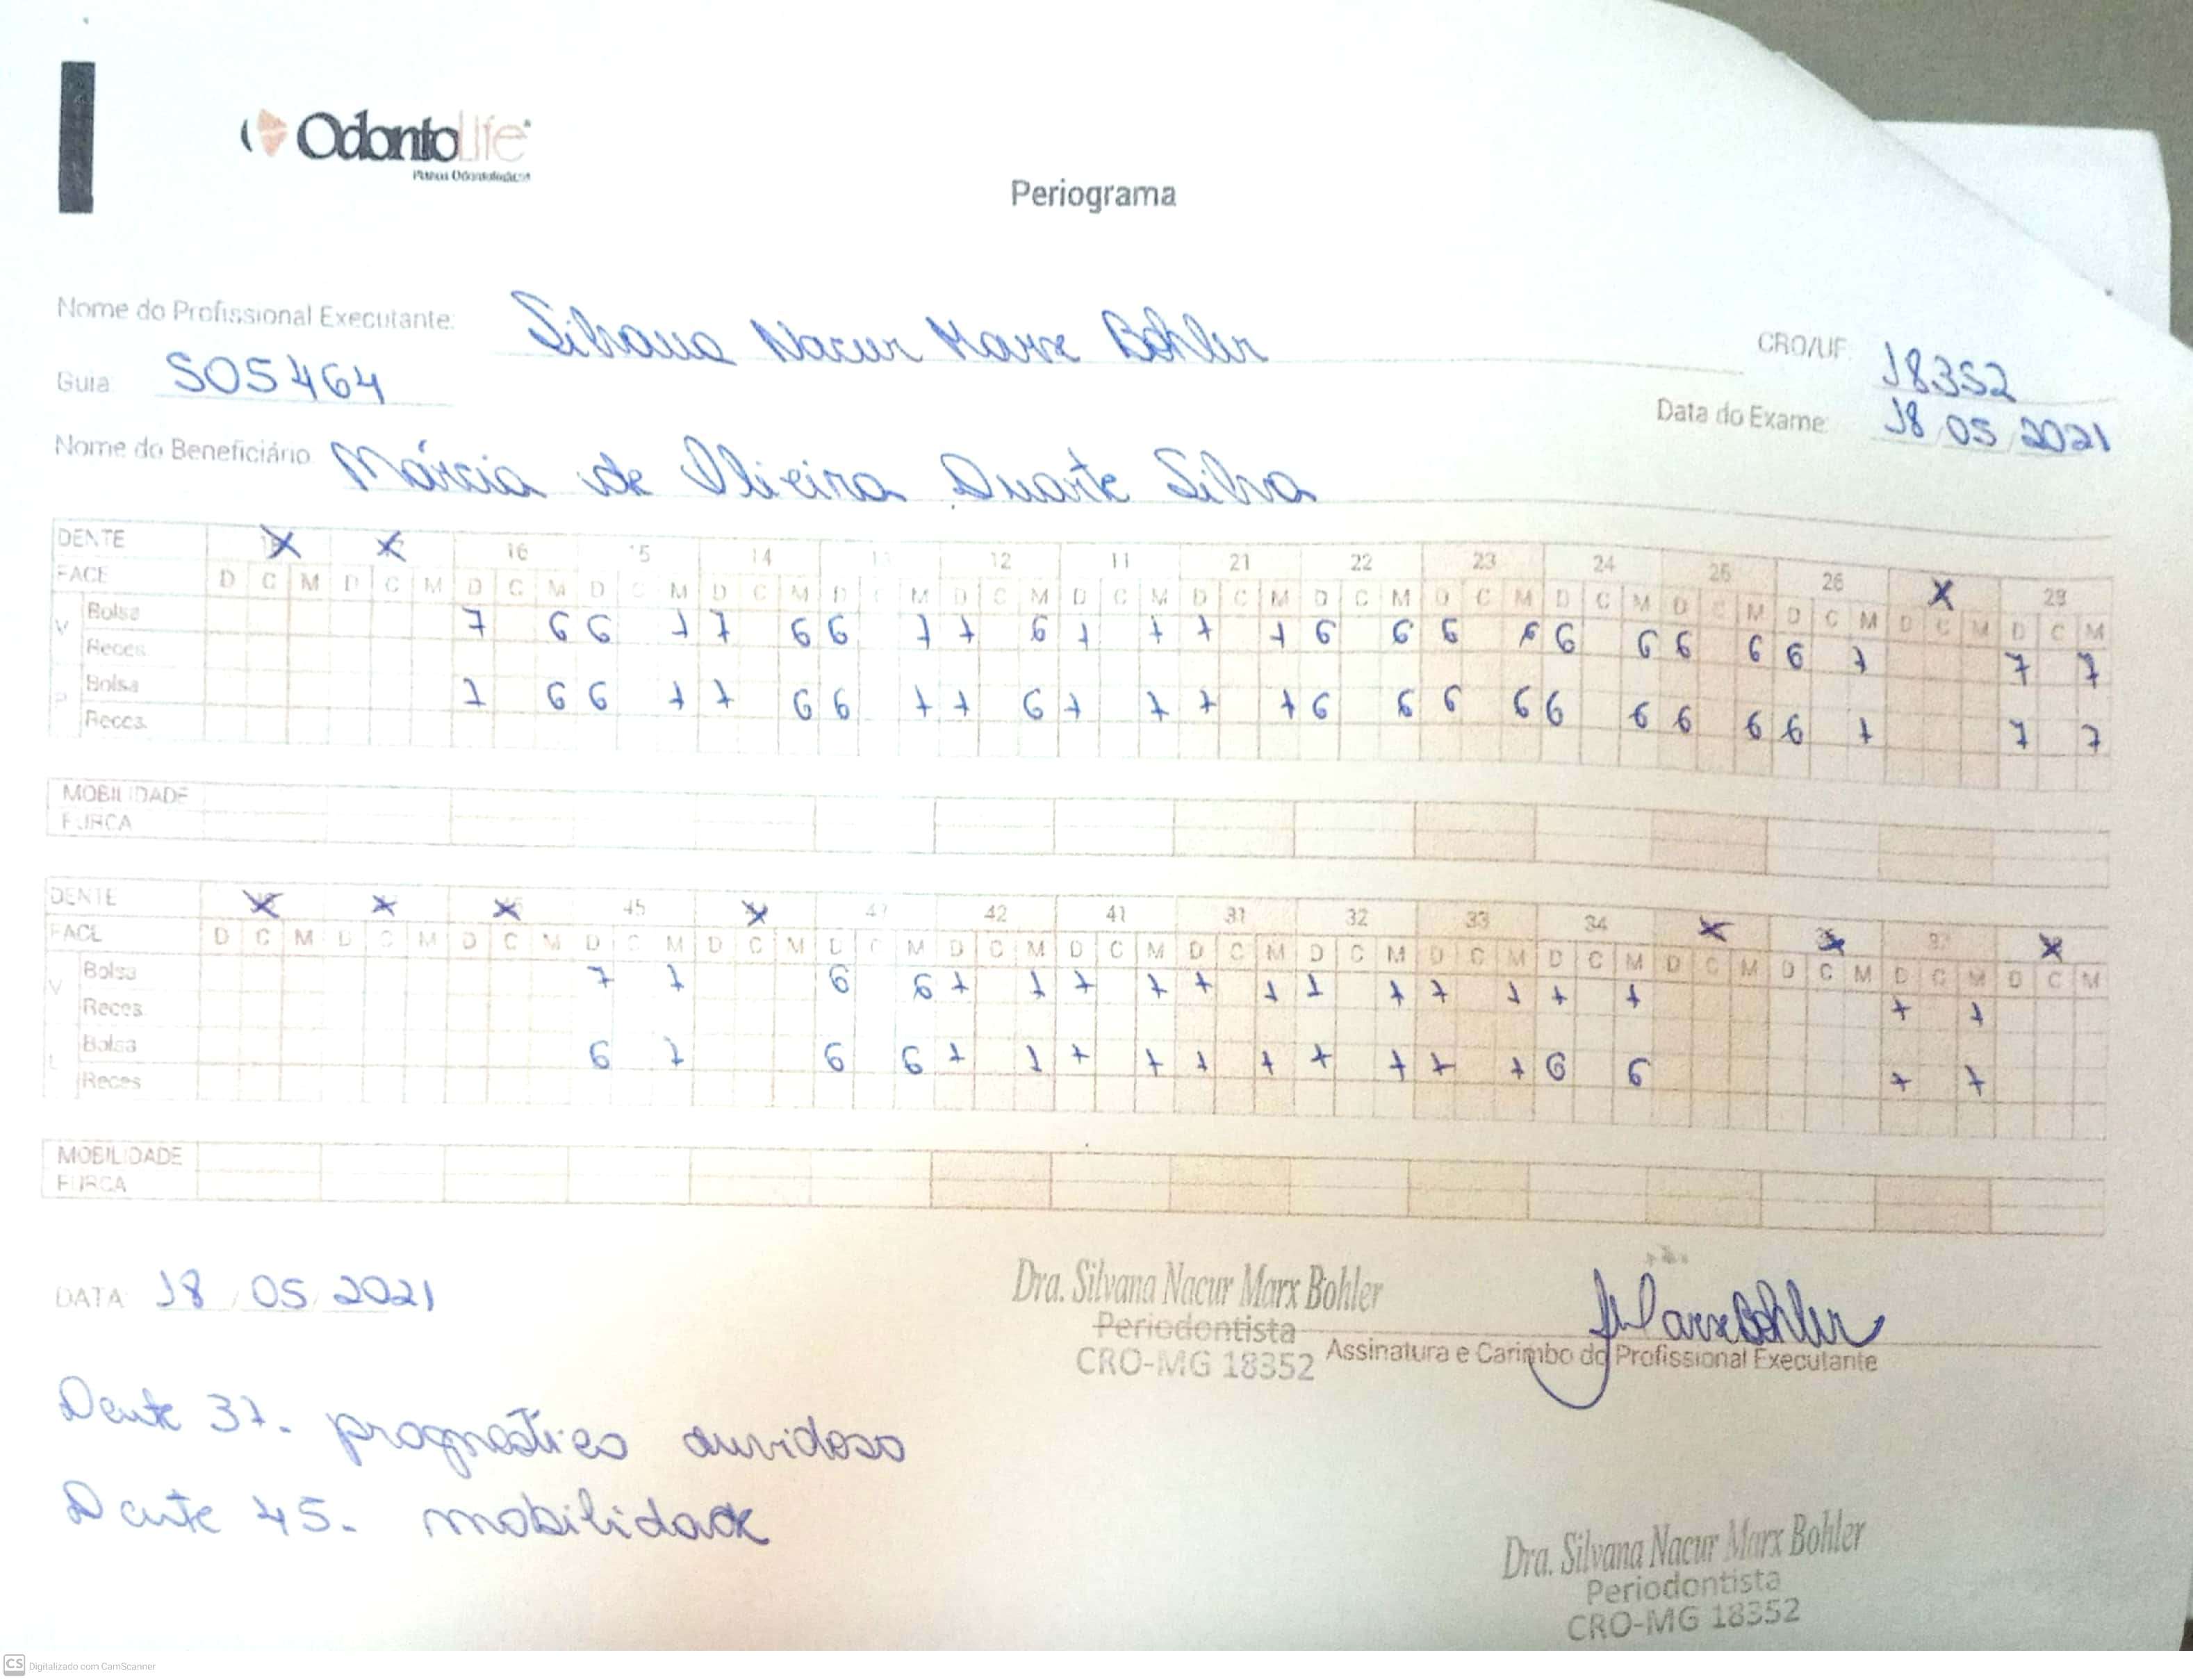 OdontoLife
Planos Odontológicos
Periograma
Nome do Profissional Executante: Silvana Nacur Marx Bohler
CRO/UF: 18352
Guia 505464
Data do Exame: 18 05 2021
Nome do Beneficiário Márcia de Oliveira Duarte Silva
DENTE X X 16 15 14 13 12 11 21 22 23 24 25 26 X 28
FACE D C M D C M D C M D C M D C M D C M D C M D C M D C M D C M D C M D C M D C M D C M D C M D C M
V Bolsa 7 6 6 7 7 6 6 7 7 6 7 7 7 7 6 6 6 6 6 6 6 6 6 7 7 7
Reces
P Bolsa 7 6 6 7 7 6 6 7 7 6 7 7 7 7 6 6 6 6 6 6 6 6 6 7 7 7
Reces
MOBILIDADE
FURCA
DENTE X X X 45 X 43 42 41 31 32 33 34 X X 37 X
FACE D C M D C M D C M D C M D C M D C M D C M D C M D C M D C M D C M D C M D C M D C M D C M D C M
V Bolsa 7 7 6 6 7 7 7 7 7 7 7 7 7 7 7 7 7 7
Reces
L Bolsa 6 7 6 6 7 7 7 7 7 7 7 7 7 7 6 6 7 7
Reces
MOBILIDADE
FURCA
DATA 18 / 05 / 2021
Dra. Silvana Nacur Marx Bohler
Periodontista
CRO-MG 18352
Assinatura e Carimbo do Profissional Executante
Dente 37. prognostico duvidoso
Dente 45. mobilidade
Dra. Silvana Nacur Marx Bohler
Periodontista
CRO-MG 18352
CS Digitalizado com CamScanner